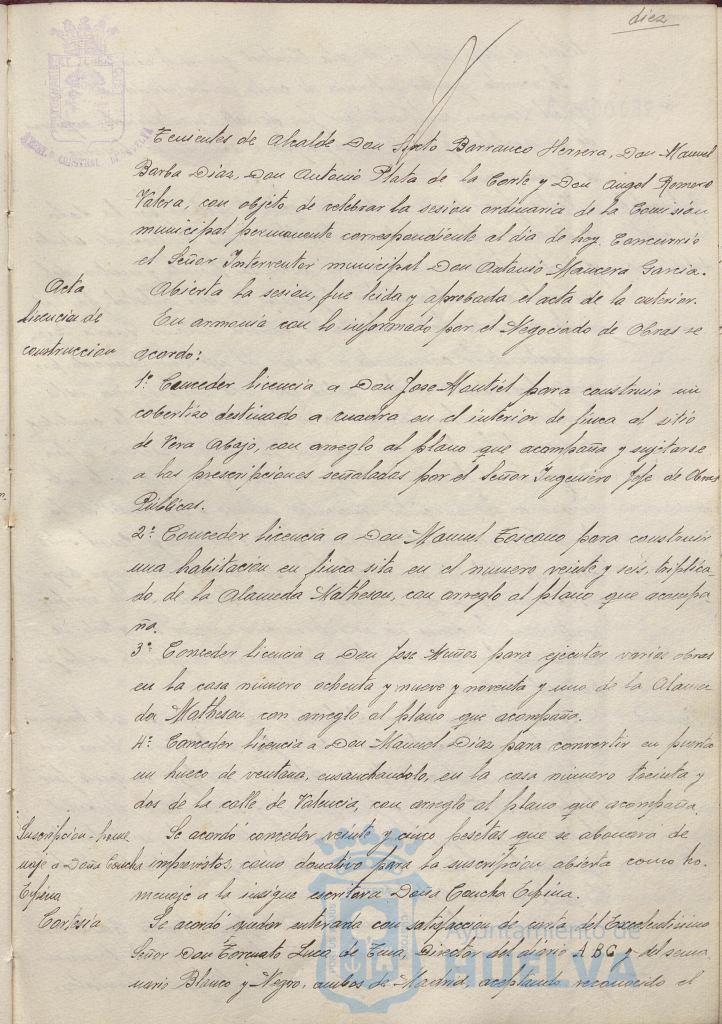 diez
Tenientes de Alcalde Don Sixto Barranco Herrera, Don Manuel
Barba Diaz, Don Antonio Plata de la Corte y Don Angel Romero
Valera, con objeto de celebrar la sesion ordinaria de la Comision
municipal permanente correspondiente al dia de hoy. Concurrió
el Señor Interventor municipal Don Antonio Mancera Garcia.
Acta
Abierta la sesion, fue leida y aprobada el acta de la anterior.
licencia de
construccion
En armonia con lo informado por el Negociado de Obras se
acordo:
1º Conceder licencia a Don Jose Montiel para construir un
cobertizo destinado a cuadra en el interior de finca al sitio
de Vera Abajo, con arreglo al plano que acompaña y sujetarse
a las prescripciones señaladas por el Señor Ingeniero Jefe de Obras
Públicas.
2º Conceder licencia a Don Manuel Toscano para construir
una habitacion en finca sita en el numero veinte y seis, triplica-
do, de la Alameda Matheson, con arreglo al plano que acompa-
ña.
3º Conceder licencia a Don Jose Muñoz para ejecutar varias obras
en la casa numero ochenta y nueve y noventa y uno de la Alame
da Matheson con arreglo al plano que acompaña.
4º Conceder licencia a Don Manuel Diaz para convertir en puerta
un hueco de ventana, ensanchandolo, en la casa número treinta y
dos de la calle de Valencia, con arreglo al plano que acompaña.
Suscripcion-home
naje a Doña Concha
Espina
Se acordó conceder veinte y cinco pesetas que se abonará de
imprevistos, como donativo para la suscripcion abierta como ho-
menaje a la insigne escritora Doña Concha Espina.
Cortesia
Se acordó quedar enterada con satisfaccion de carta del Excelentisimo
Señor Don Torcuato Luca de Tena, Director del diario ABC y del sema
nario Blanco y Negro, ambos de Madrid, aceptando reconocido el
Ayuntamiento de
HUELVA